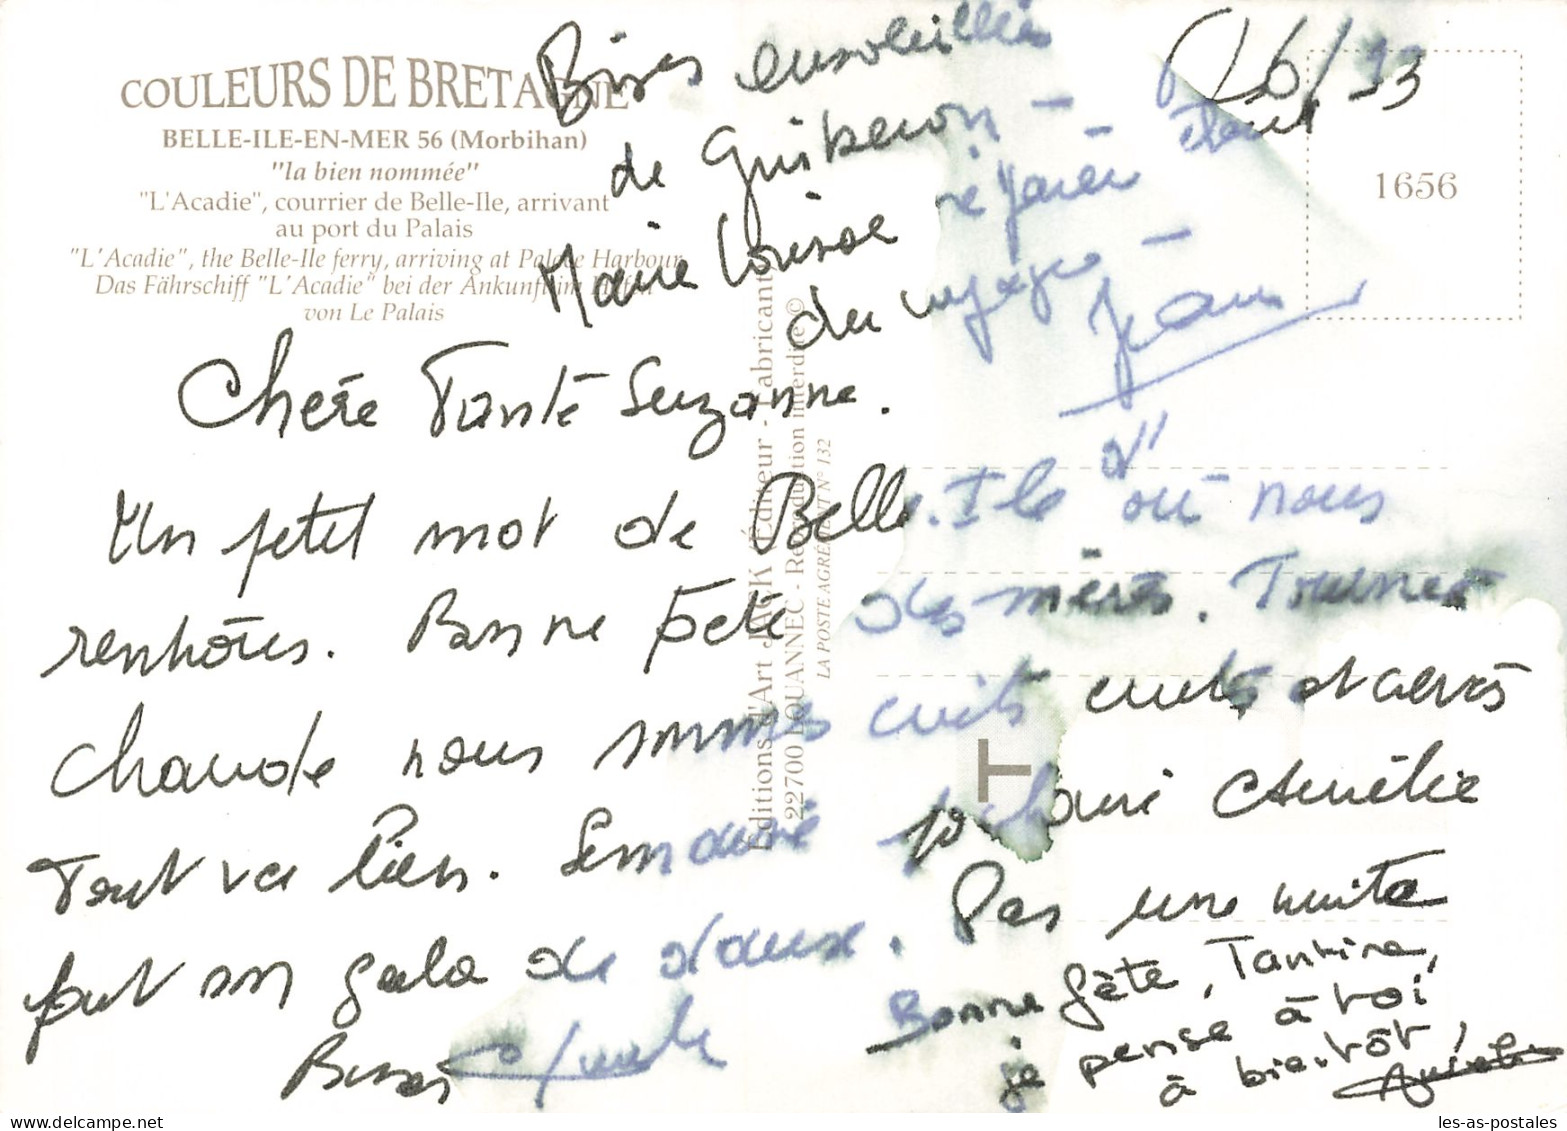 COULEURS DE BRETAGNE
BELLE-ILE-EN-MER 56 (Morbihan)
"la bien nommée"
"L'Acadie", courrier de Belle-Ile, arrivant
au port du Palais
"L'Acadie", the Belle-Ile ferry, arriving at Palace Harbour
Das Fährschiff "L'Acadie" bei der Ankunft im Hafen
von Le Palais
Bises ensoleillées
de Quiberon -
Marie Louise
du voyage -
Jean
6/93
1656
Chère Tante Suzanne.
Un petit mot de Belle-Ile d'où nous
rentrons. Bonne fête des mères. Journée
chaude nous sommes cuits cuits et archi
Tout va bien. Semaine Aurélie
fait son gala de danse. Pas une minute
Bises
Bonne fête, Tantine,
je pense à toi
à bientôt!
Aurélie
Editions d'Art JACK (Éditeur - Fabricant)
22700 LOUANNEC - Reproduction interdite ©
LA POSTE AGRÉMENT N° 132
T
les-as-postales